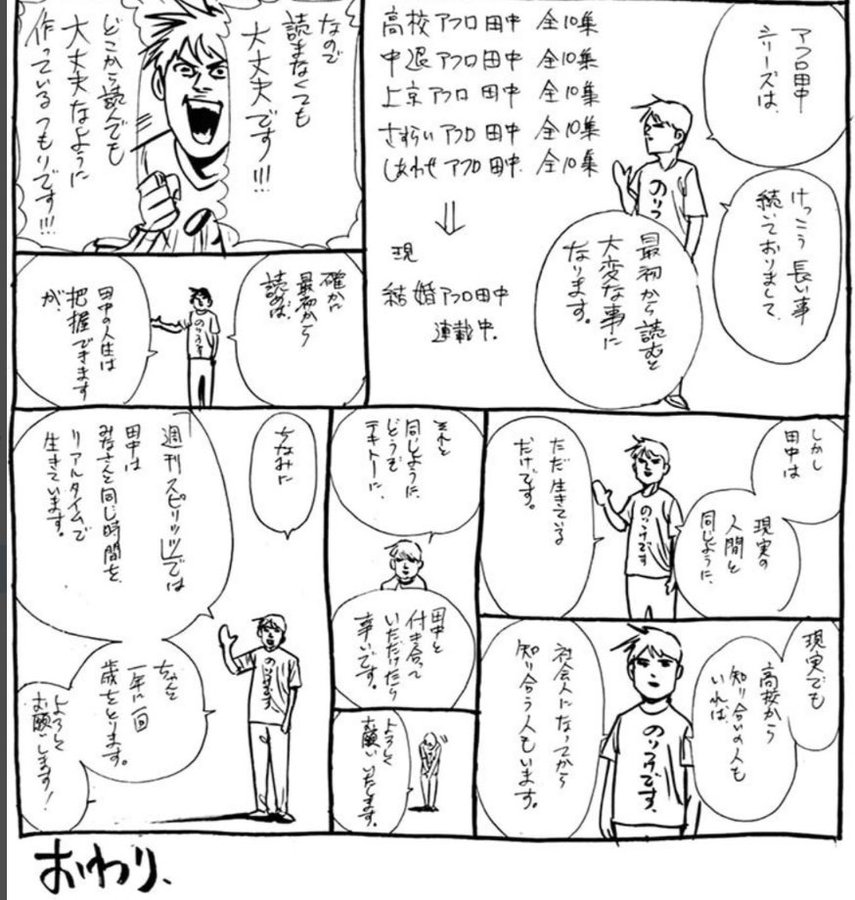 アフロ田中
シリーズは、
けっこう長い事
続いておりまして、
高校アフロ田中 全10集
中退アフロ田中 全10集
上京アフロ田中 全10集
さすらいアフロ田中 全10集
しあわせアフロ田中 全10集
⇓
現
結婚アフロ田中
連載中.
最初から読むと
大変な事に
なります。
のりつ
なので
読まなくても
大丈夫です!!!
どこから読んでも
大丈夫なように
作っているつもりです!!!
の
確かに
最初から
読めば、
田中の人生は
把握できます
が、
のりつけ
しかし
田中は
現実の
人間と
同じように、
ただ生きている
だけです。
のりつけです
現実でも
高校から
知り合いの人も
いれば、
社会人になってから
知り合う人もいます。
のりつけです.
それと
同じように、
どうぞ
テキトーに、
田中と
付き合って
いただけたら
幸いです。
よろしく
お願いいたします。
ちなみに
週刊スピリッツ」では
田中は
みなさんと同じ時間を、
リアルタイムで
生きています。
のりつけです
ちゃんと
一年に一回
歳をとります。
よろしく
お願いします!
おわり、